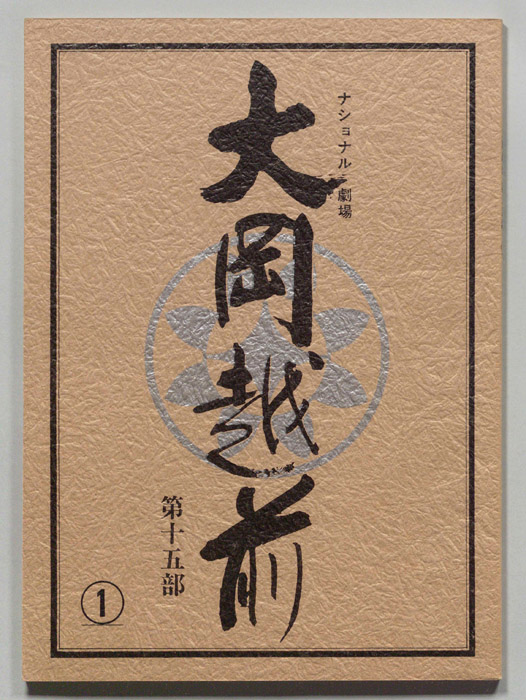 ナショナル劇場
大岡越前
第十五部
①